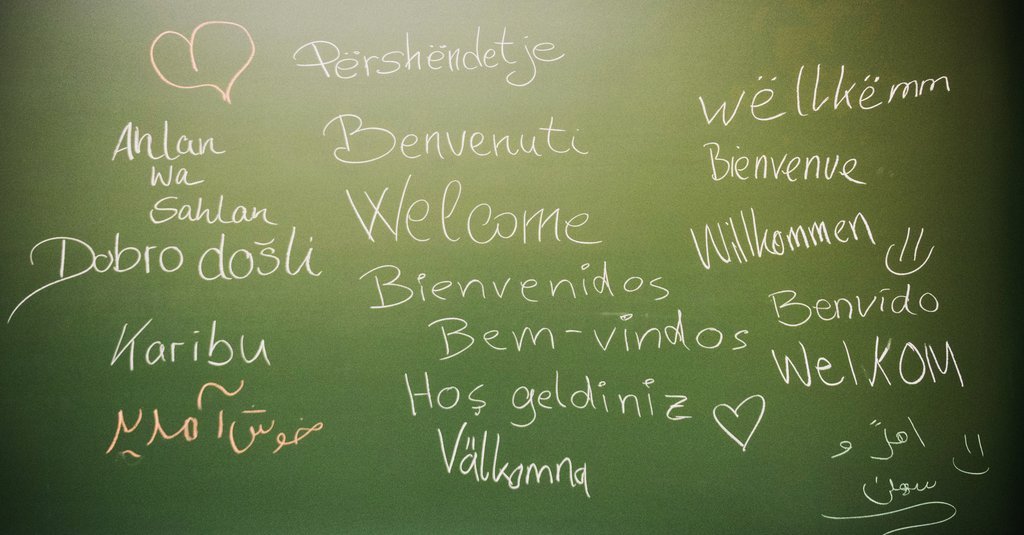 Përshëndetje
Ahlan
wa
Sahlan
Dobro došli
Karibu
خوش آمدید
Benvenuti
Welcome
Bienvenidos
Bem-vindos
Hoş geldiniz
Välkomna
wëllkëmm
Bienvenue
Willkommen
Benvido
Welkom
و